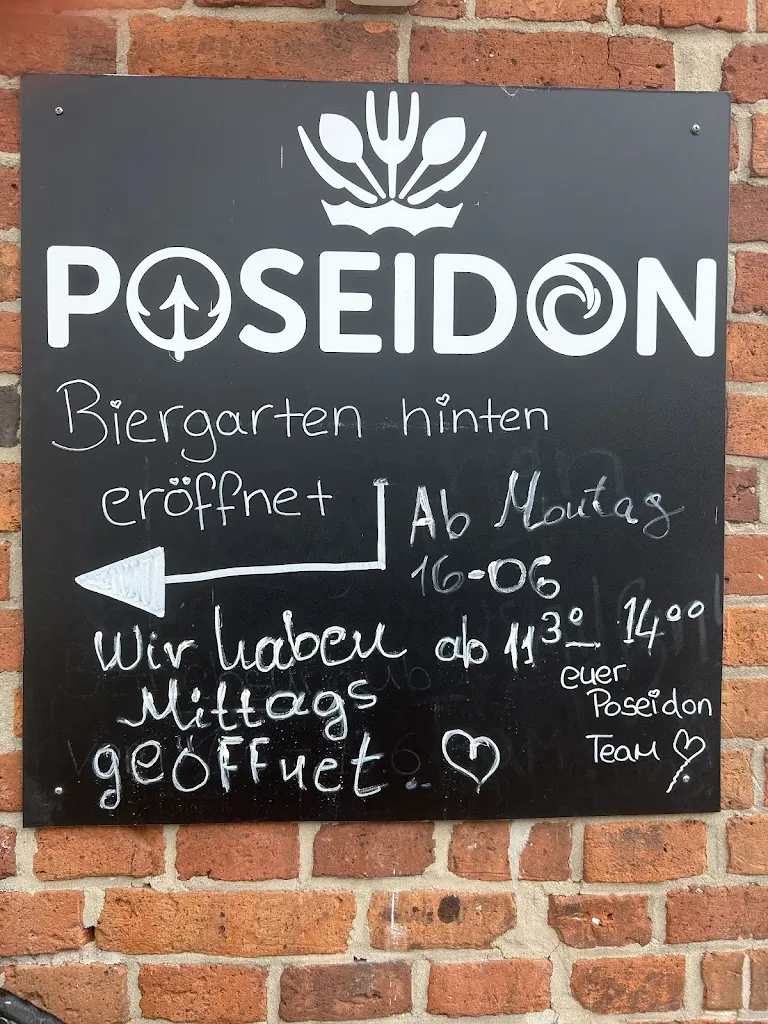 POSEIDON
Biergarten hinten
eröffnet
Ab Montag
16-06
Wir haben ab 11³⁰- 14⁰⁰
Mittags
geöffnet..
euer
Poseidon
Team